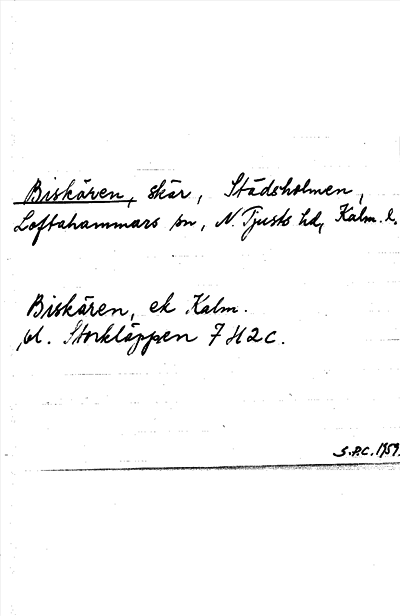 Biskären, skär, Städsholmen,
Loftahammars sn, N. Tjusts hd, Kalm. l.
Biskären, ek Kalm.
bl. Storkläppen 7 H 2 c.
S.P.C. 1959.